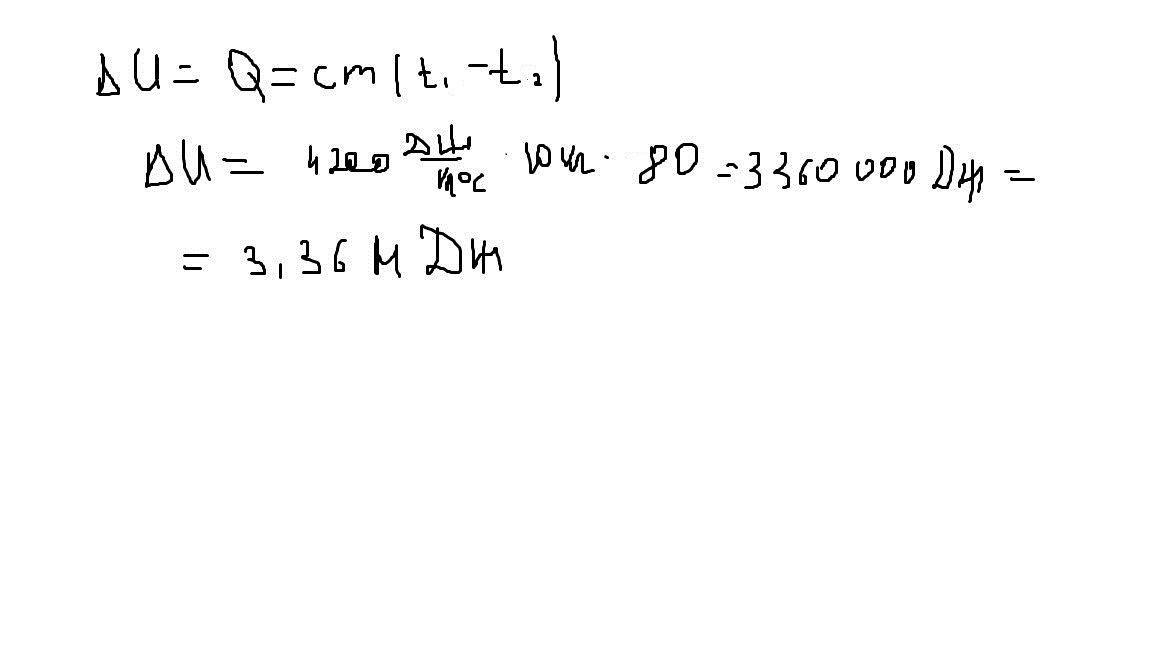 ΔU = Q = cm(t₁ - t₂)
ΔU = 4200 Дж/кг°С · 10 кг · 80 = 3360 000 Дж =
= 3,36 М Дж